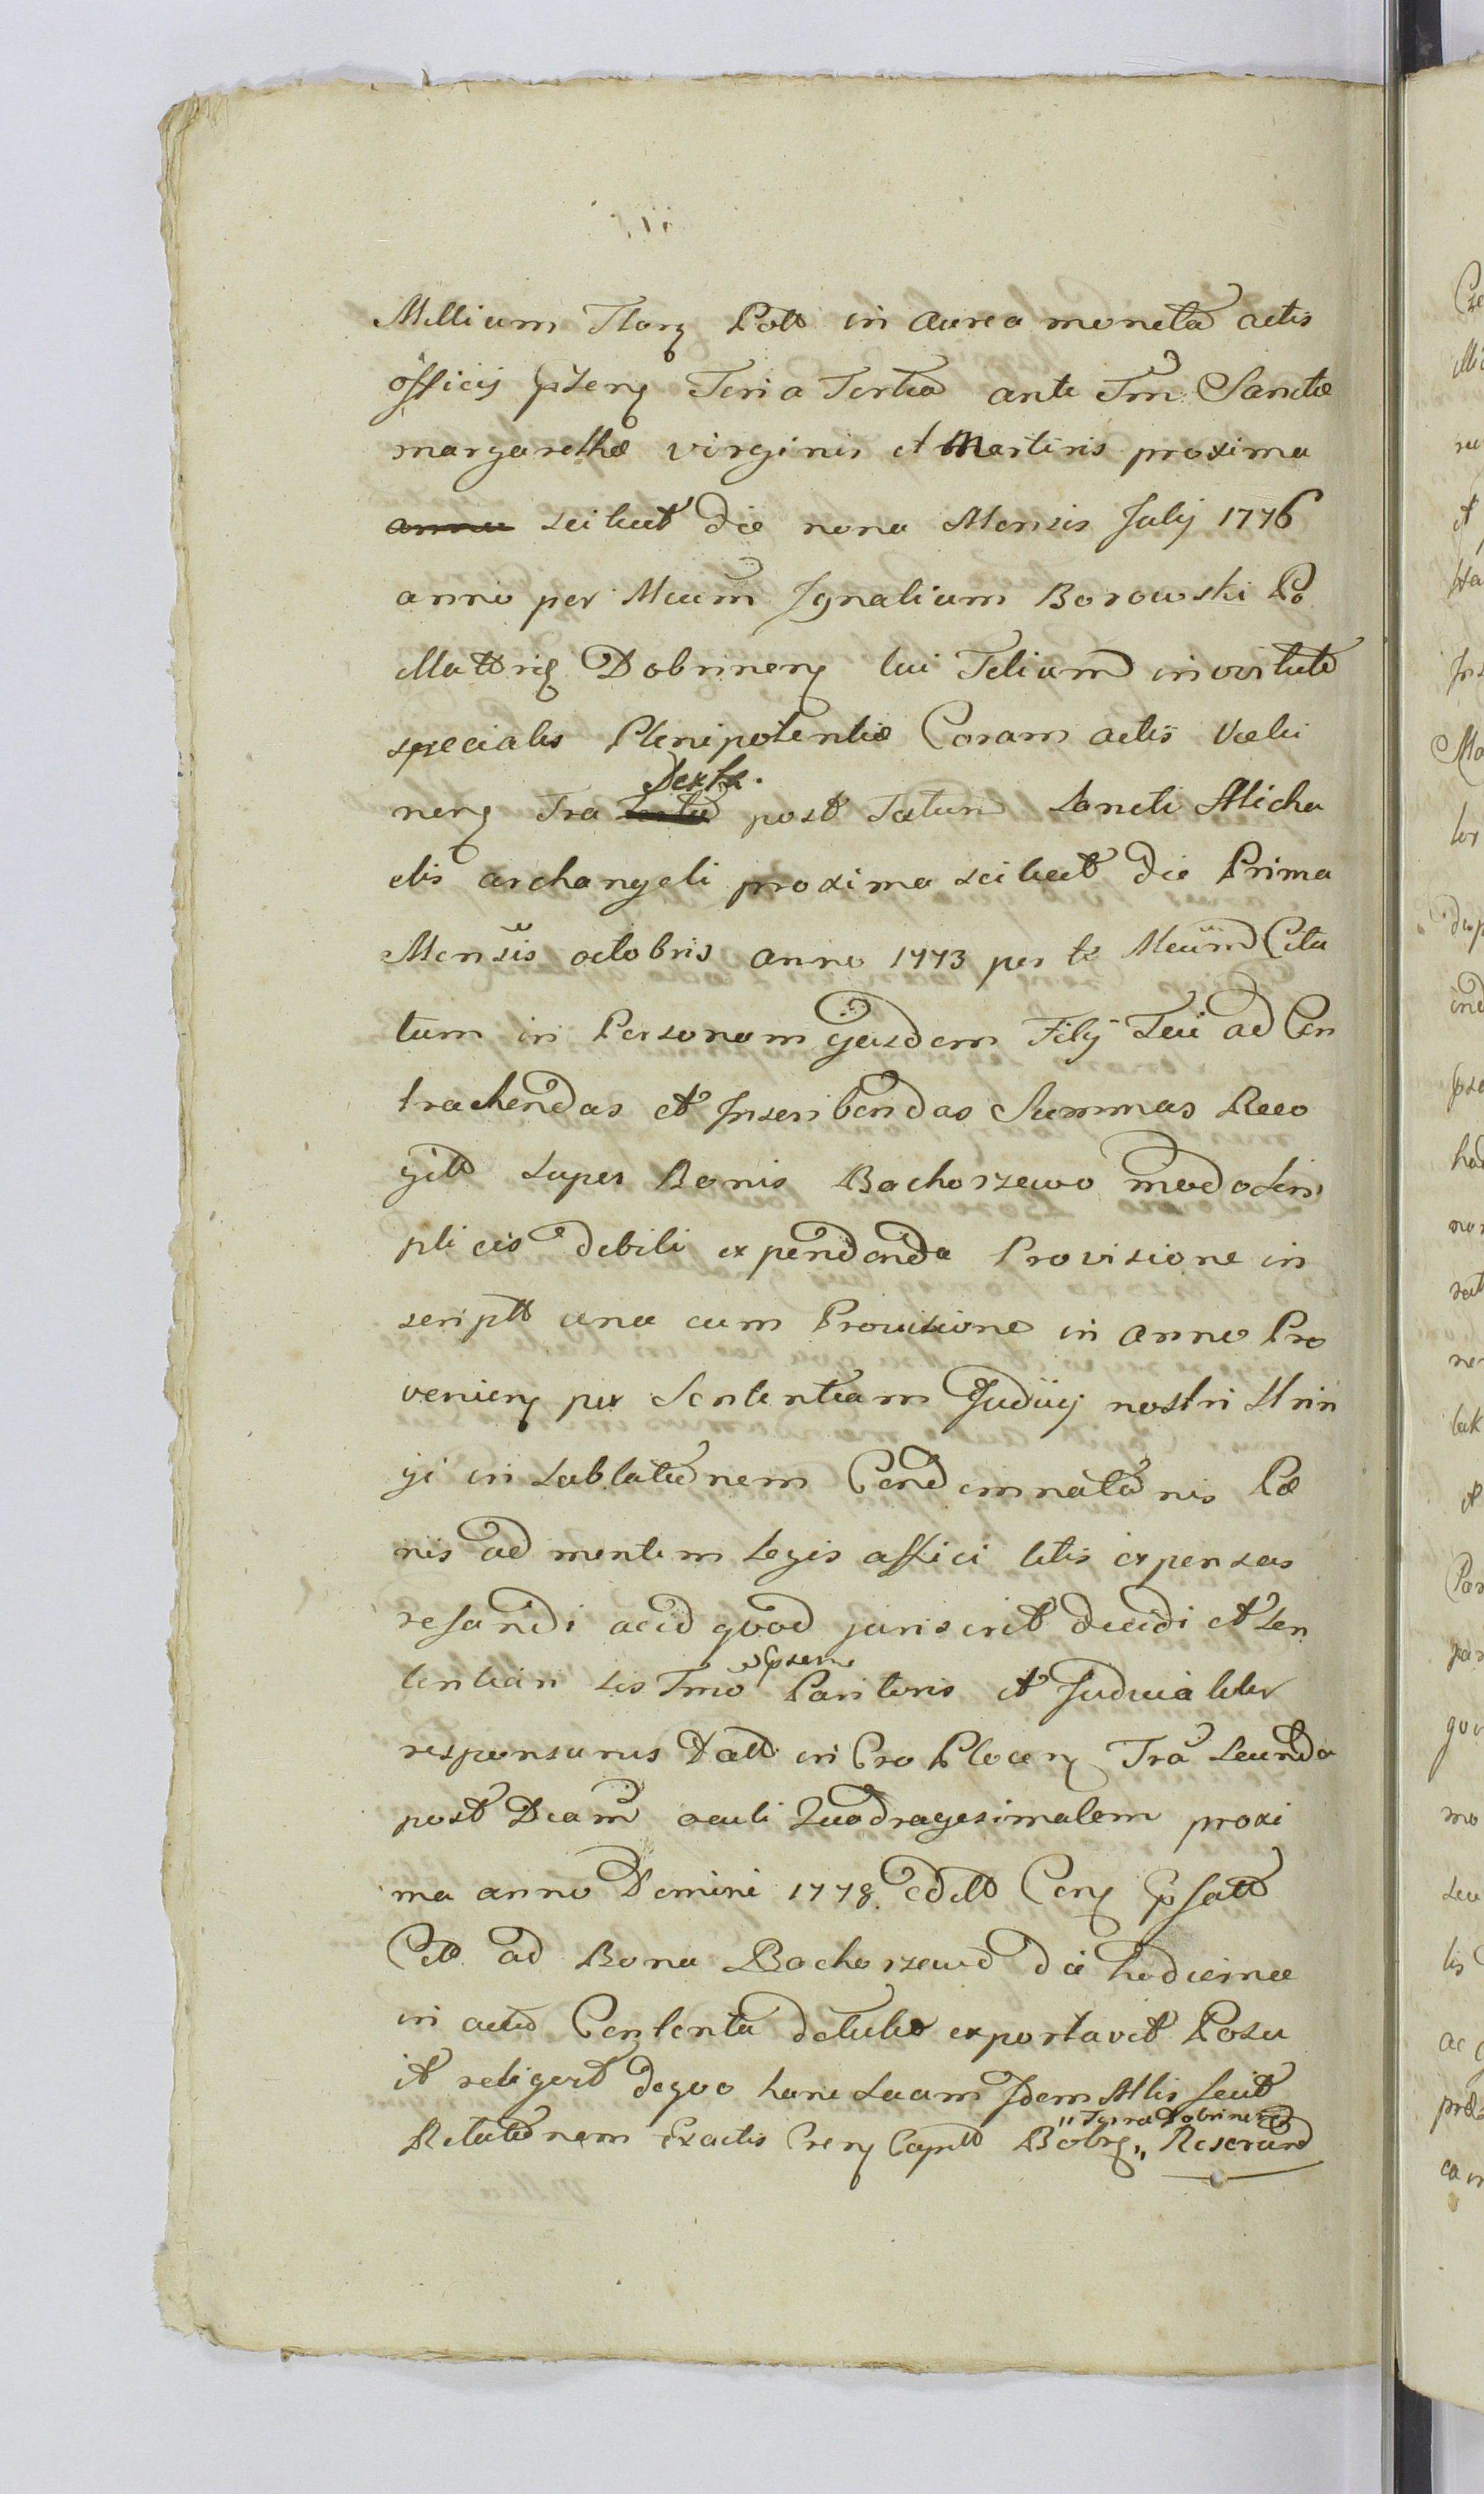 Millium Florq Poll in Aurea moneta actis
officij psterq Feria Tertia ante Fm Sanctæ
margarethæ virginis et Martiris proxima
scilicet die nona Mensis Julij 1776
anno per Mcum Ignatium Borowski Po
Dobrinenq tui Filium in virtute
specialis Plenipotentiæ Coram actis
nenq Fra Sexta post Festum Sancti Micha
elis archangeli proxima scilicet die Prima
Mensis octobris anno 1773 per te Mcum Cita
tum in Personam ejusdem Filij Tui ad Con
trachendas et Inscribendas Summas Reco
gitt super Bonis Bachorzewo modo sim
plicis debiti expendenda Provisione in
scriptt una cum Provisione in anno Pro
venienq per Sententiam Judicij nostri strin
gi in sublationem Condemnationis Pœ
nis ad mentem legis affici litis expensas
refundi acid quod juris erit decidi et sen
tentiari sis Fmo psens Pariturus et Judicialiter
responsurus Datt in Cro Plocenq Fra Secunda
post Dcam oculi Quadragesimalem proxi
ma anno Domini 1778 editt Conq psatt
Citt ad Bona Bachorzewo die hodierna
in actu Contenta detulit exportavit Posu
it reliqvit deqvo hanc suam Idem Mlis fecit
Relationem Exactis Crenq Captt Bobrq „ Reserand
„ Terra Dobrinen